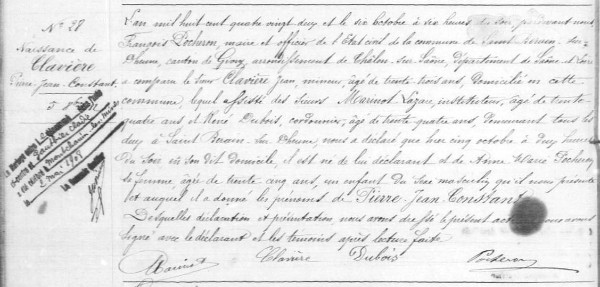 N° 27
Naissance de
Clavière
Pierre-Jean-Constant
L'an mil huit cent quatre vingt dix et le six Octobre à six heures du soir, par devant nous
François Pocheron, maire et officier de l'Etat civil de la commune de Saint-Berain-sur-
Dheune, canton de Givry, arrondissement de Châlon-sur-Saône, département de Saône et Loire
a comparu le sieur Clavière Jean, mineur, âgé de trente trois ans, domicilié en cette
commune, lequel assisté des sieurs Marinot Lazare, instituteur, âgé de trente
quatre ans et René Dubois, cordonnier, âgé de trente quatre ans, demeurant tous les
deux à Saint Berain-sur-Dheune, nous a déclaré que hier cinq octobre à dix heures
du soir en son dit domicile, il est né de lui déclarant et de Marie
sa femme, âgée de trente cinq ans, un enfant du sexe masculin qu'il nous présente
et auquel il a donné les prénoms de Pierre Jean Constant
Desquelles déclaration et présentation, nous avons dressé le présent acte que nous avons
signé avec le déclarant et les témoins après lecture faite.
Marinot Clavière Dubois Pocheron